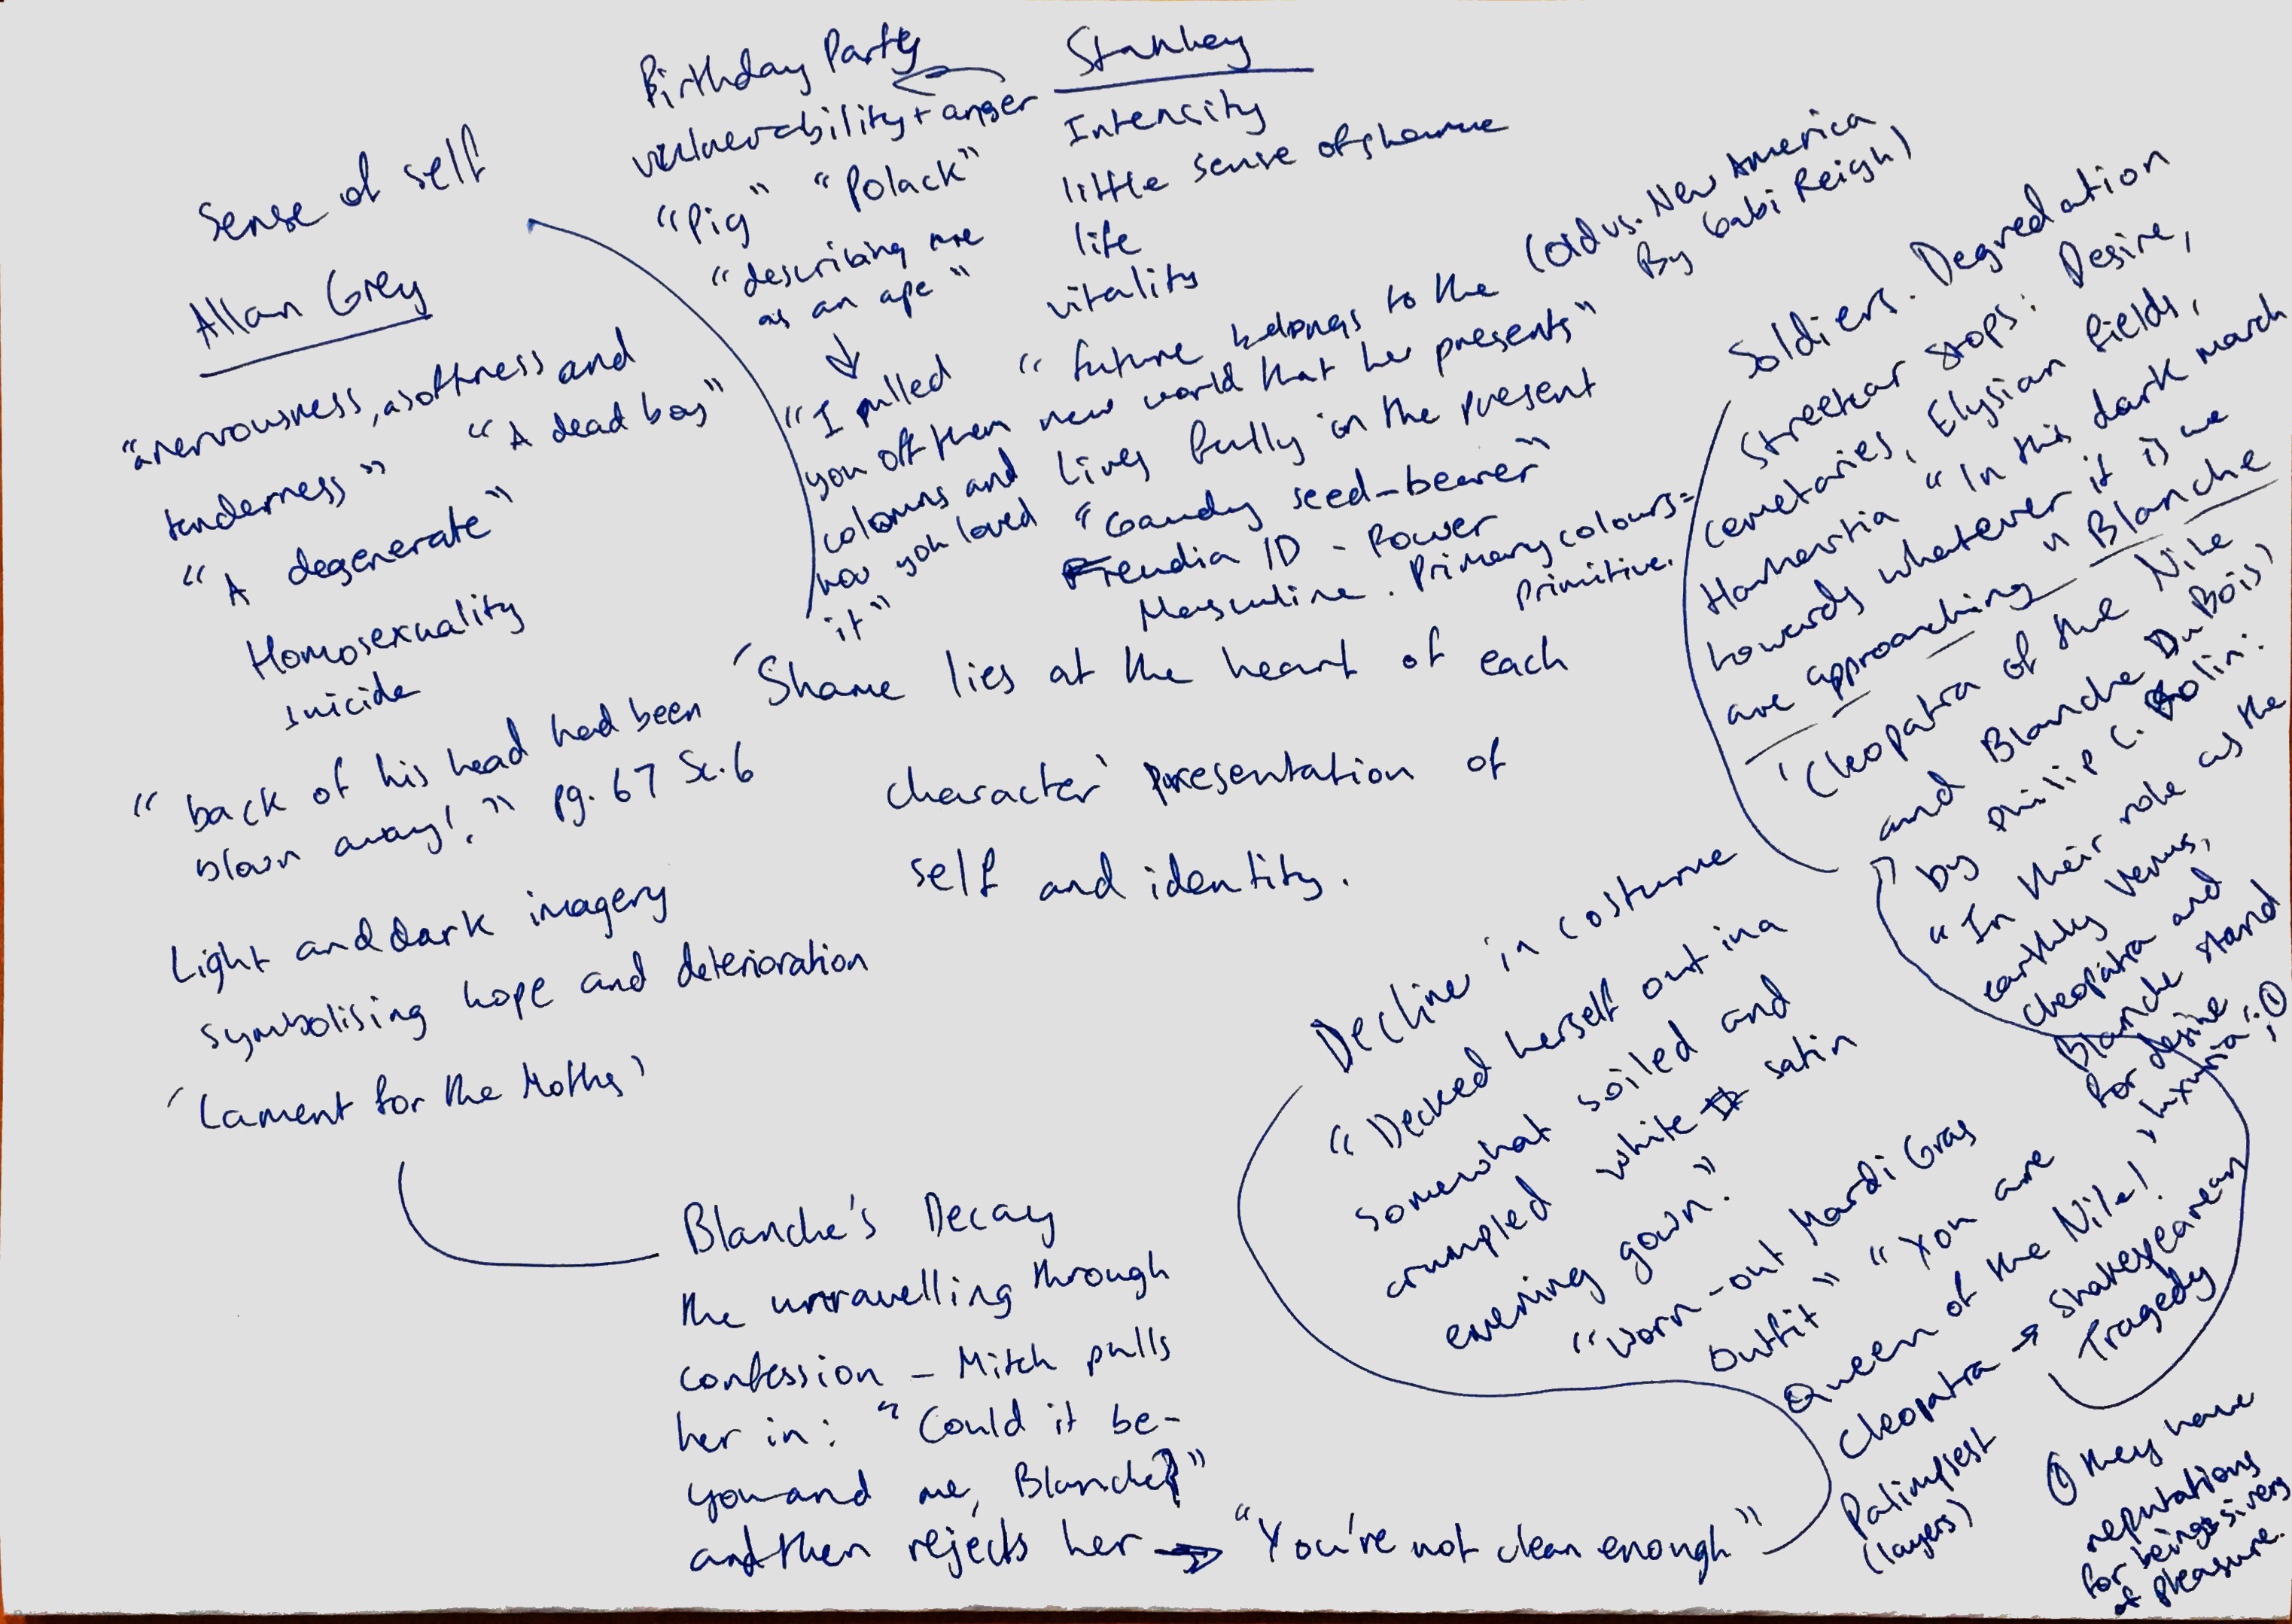 Sense of self
Allan Grey
"a nervousness, a softness and
tenderness" "A dead boy"
"A degenerate"
Homosexuality
suicide
"back of his head had been
blown away!" pg. 67 Sc. 6
Light and dark imagery
symbolising hope and deterioration
'Lament for the Moths'
Birthday Party
vulnerability + anger
"Pig" "Polack"
"describing me
as an ape"
"I pulled
you off them
colomns and
how you loved
it"
Stanley
Intensity
little sense of shame
life
vitality
"future belongs to the (Old vs. New America
new world that he presents" By Gabi Reigh)
Lives fully in the present
"Gaudy seed-bearer"
Freudia ID - Power
Masculine. Primary colours =
Primitive.
'Shame lies at the heart of each
character' presentation of
self and identity.
Soldiers. Degredation
Streetcar stops: Desire,
Cemetaries, Elysian fields,
Hamartia "In this dark march
towards whatever it is we
are approaching" Blanche
'Cleopatra of the Nile
and Blanche DuBois'
by Philip C. Kolin:
"In their role as the
earthly Venus,
Cleopatra and
Blanche stand
for desire
'luxuria'" ; ①
Decline in costume
"Decked herself out in a
somewhat soiled and
crumpled white satin
evening gown."
"Worn-out Mardi Gras
outfit" "You are
Queen of the Nile!
Cleopatra → Shakespearean
Tragedy
Palimpsest
(layers)
① they have
reputations
for being givers
of pleasure.
Blanche's Decay
the unravelling through
confession - Mitch pulls
her in: "Could it be-
you and me, Blanche?"
and then rejects her → "You're not clean enough"